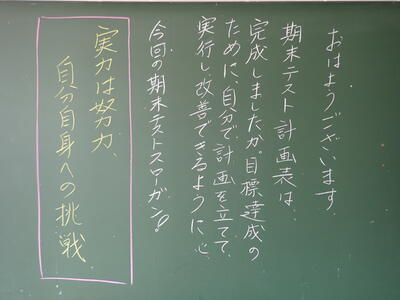 おはようございます
期末テスト計画表は、
完成しましたか。目標達成の
ために、自分で計画を立てて、
実行し改善できるように
今回の期末テストスローガン!
実力は努力、
自分自身への挑戦